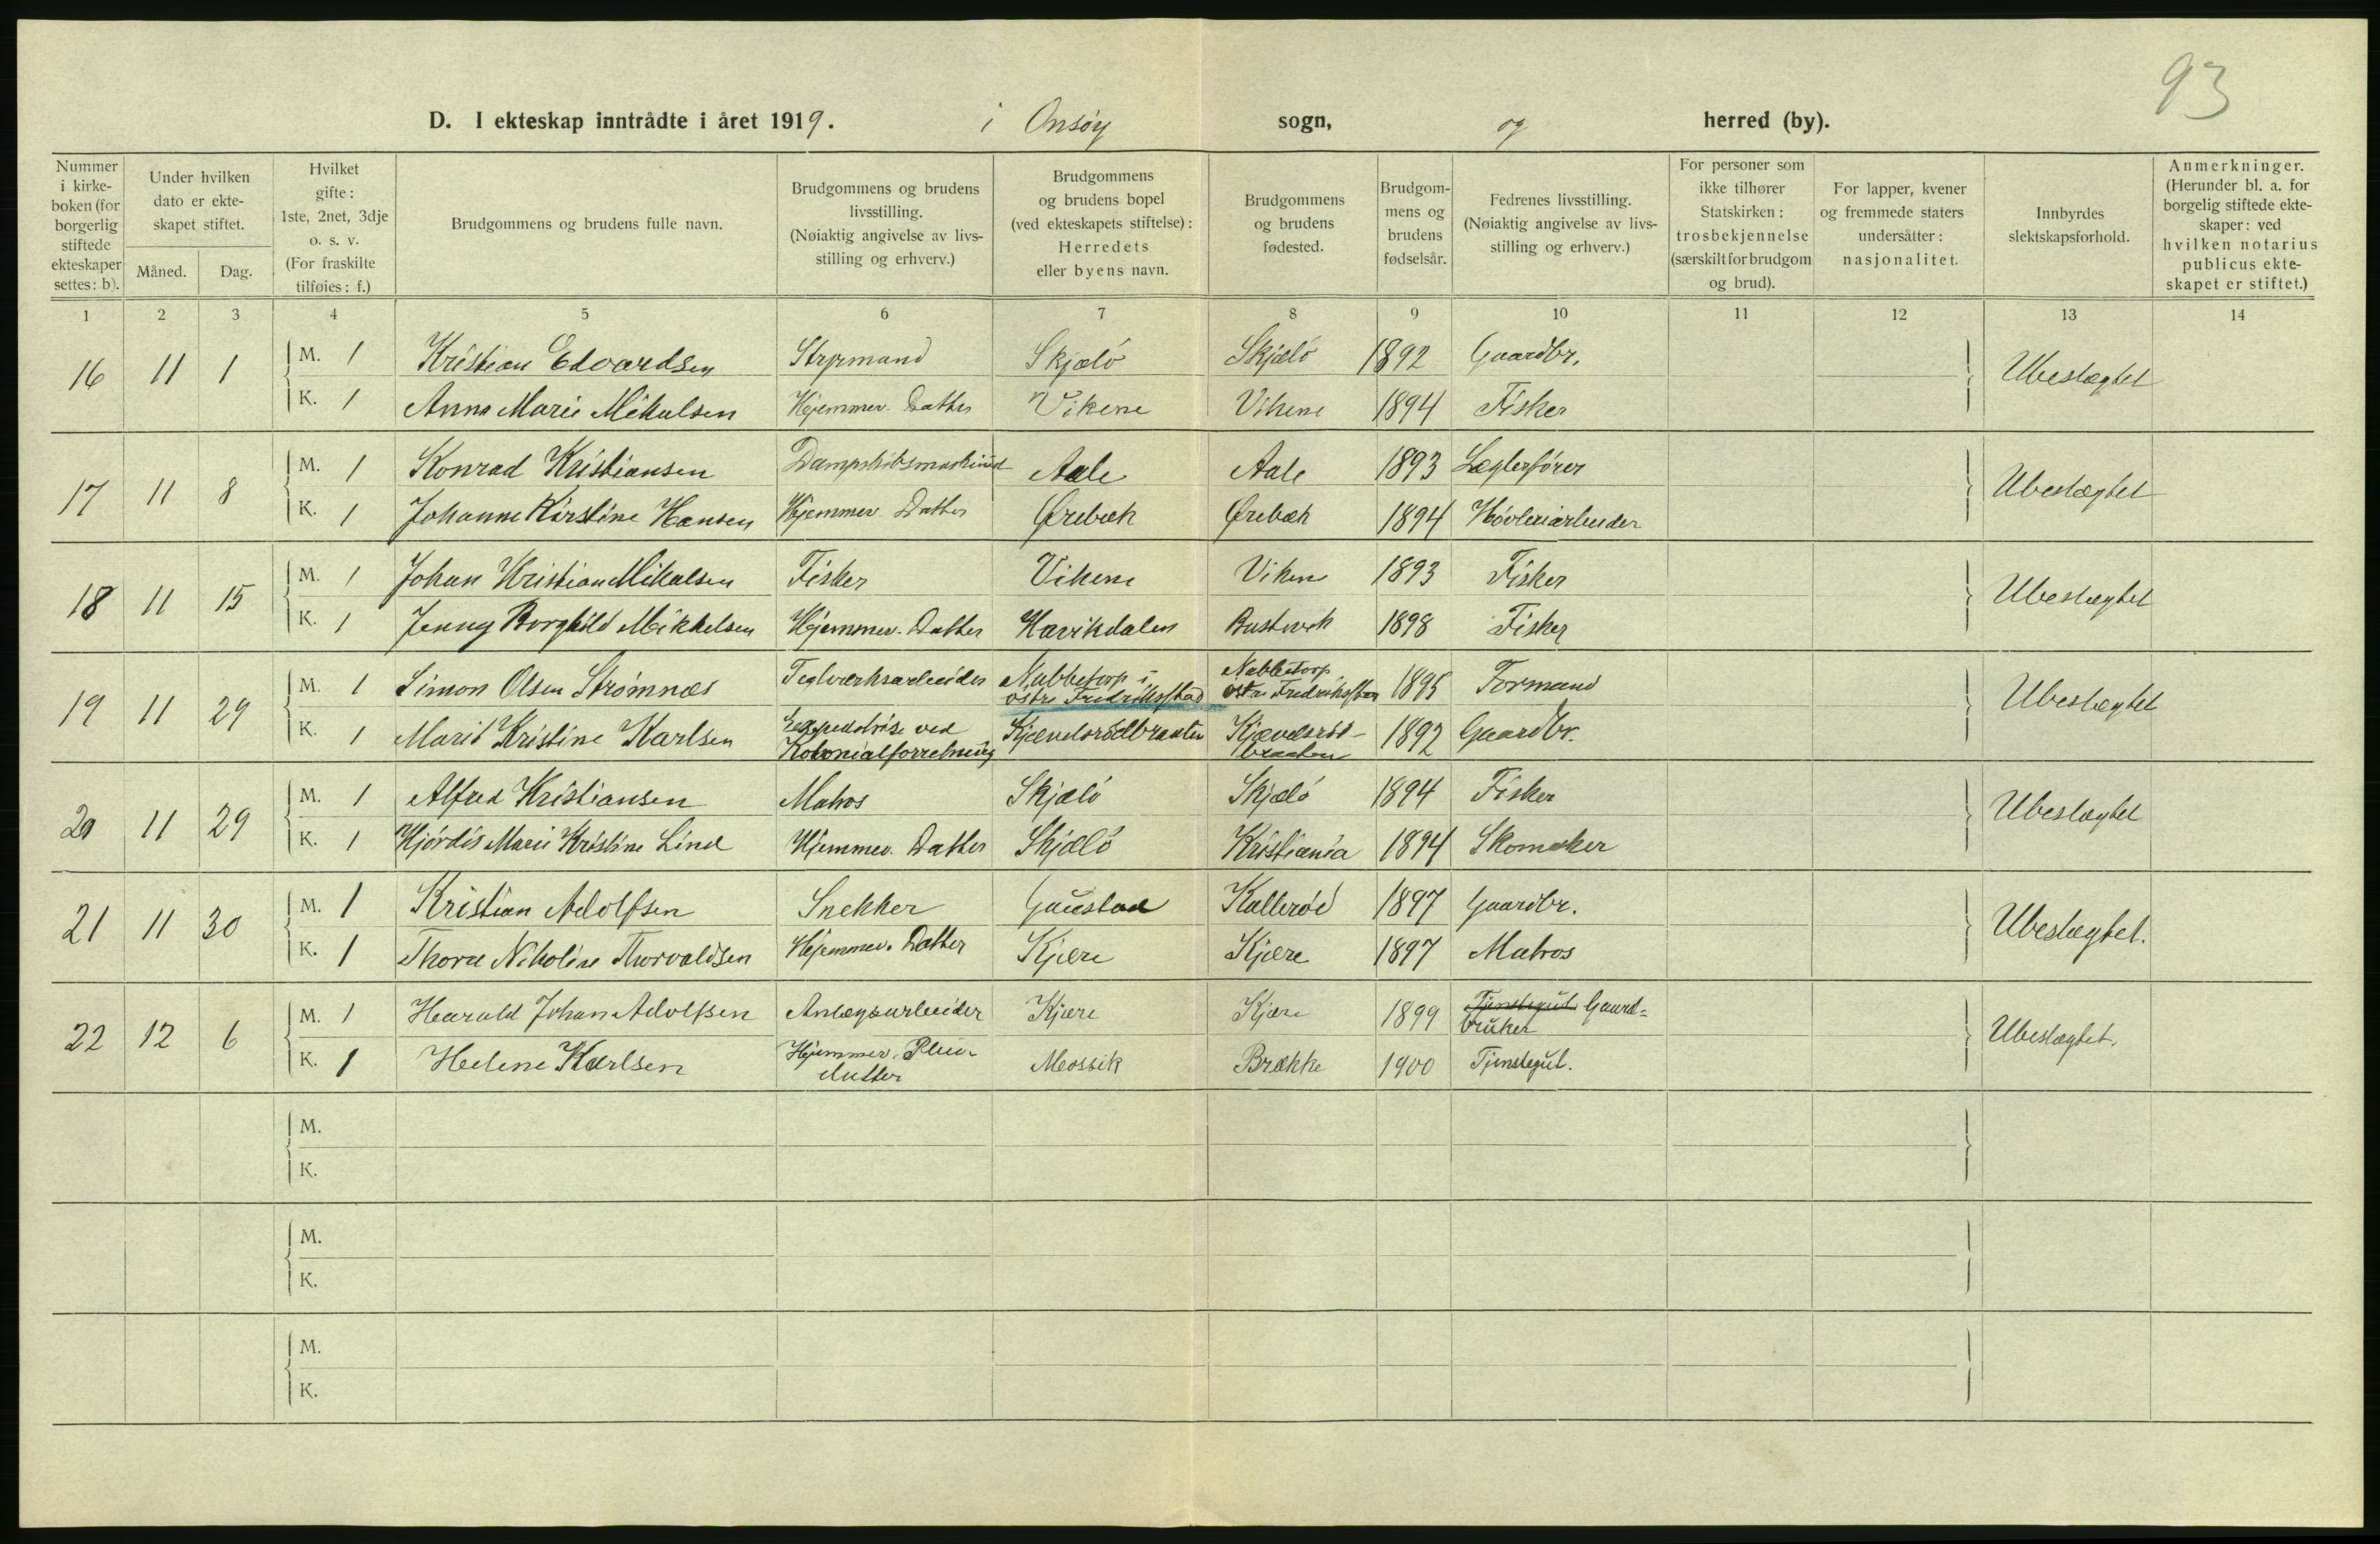 93
D. I ekteskap inntrådte i året 1919. i Onsöy sogn, og herred (by).
Nummer i kirke-boken (for borgerlig stiftede ekteskaper settes: b).
Under hvilken dato er ekte-skapet stiftet.
Måned. Dag.
Hvilket gifte: 1ste, 2net, 3dje o. s. v. (For fraskilte tilføies: f.)
Brudgommens og brudens fulle navn.
Brudgommens og brudens livsstilling. (Nøiaktig angivelse av livs-stilling og erhverv.)
Brudgommens og brudens bopel (ved ekteskapets stiftelse): Herredets eller byens navn.
Brudgommens og brudens fødested.
Brudgom-mens og brudens fødselsår.
Fedrenes livsstilling. (Nøiaktig angivelse av livs-stilling og erhverv.)
For personer som ikke tilhører Statskirken: trosbekjennelse (særskilt for brudgom og brud).
For lapper, kvener og fremmede staters undersåtter: nasjonalitet.
Innbyrdes slektskapsforhold.
Anmerkninger. (Herunder bl. a. for borgelig stiftede ekte-skaper: ved hvilken notarius publicus ekte-skapet er stiftet.)
1 2 3 4 5 6 7 8 9 10 11 12 13 14
16 11 1 M. 1 Kristian Edvardsen Styrmand Skjælö Skjælö 1892 Gaardbr. Ubeslægtet
K. 1 Anna Marie Mikalsen Hjemmev. Datter Vikene Vikene 1894 Fisker
17 11 8 M. 1 Konrad Kristiansen Aale Aale 1893 Lægterförer Ubeslægtet
K. 1 Johanne Kirstine Hansen Hjemmev. Datter Ørebæk Ørebæk 1894 Hövleriarbeider
18 11 15 M. 1 Johan Kristian Mikalsen Fisker Vikene Vikene 1893 Fisker Ubeslægtet
K. 1 Jenny Borghild Mikkelsen Hjemmev. Datter Havikdalen 1898 Fisker
19 11 29 M. 1 Simon Olsen Strömnæs Teglverksarbeider Nabbetorp i östre Fredrikstad Nabbetorp östre Fredrikstad 1895 Formand Ubeslægtet
K. 1 Marie Kristine Karlsen Expeditrise ved Kolonialforretning Kjævelsrödbraaten Kjævelsröd-braaten 1892 Gaardbr.
20 11 29 M. 1 Alfred Kristiansen Matros Skjælö Skjælö 1894 Fisker Ubeslægtet
K. 1 Hjördis Marie Kristine Lind Hjemmev. Datter Skjælö Kristiania 1894 Skomaker
21 11 30 M. 1 Kristian Adolfsen Snekker Gaustad Kalleröd 1897 Gaardbr. Ubeslægtet.
K. 1 Thora Nikoline Thorvaldsen Hjemmev. Datter Kjære Kjære 1897 Matros
22 12 6 M. 1 Harald Johan Adolfsen Anlægsarbeider Kjære Kjære 1899 Tjenstegut Gaard=bruker Ubeslægtet.
K. 1 Helene Karlsen Hjemmev. Pleie-datter Mossik Brække 1900 Tjenstegut.
M.
K.
M.
K.
M.
K.